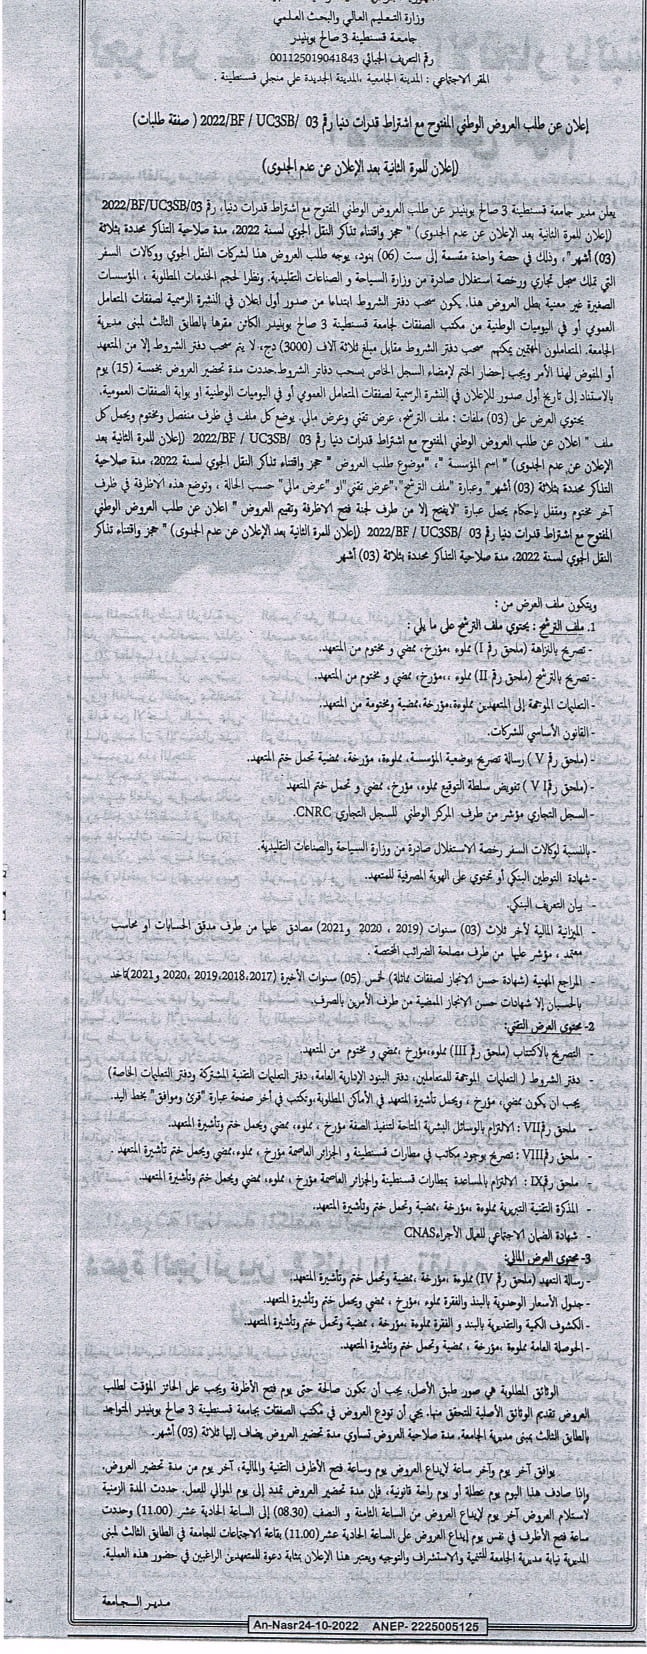 وزارة التعليم العالي والبحث العلمي
جامعة قسنطينة 3 صالح بوبنيدر
رقم التعريف الجبائي 001125019041843
المقر الاجتماعي : المدينة الجامعية ،المدينة الجديدة علي منجلي قسنطينة .
إعلان عن طلب العروض الوطني المفتوح مع اشتراط قدرات دنيا رقم 03 /2022/BF / UC3SB ( صفقة طلبات)
(إعلان للمرة الثانية بعد الإعلان عن عدم الجدوى)
يعلن مدير جامعة قسنطينة 3 صالح بوبنيدر عن طلب العروض الوطني المفتوح مع اشتراط قدرات دنيا، رقم 2022/BF/UC3SB/03
(إعلان للمرة الثانية بعد الإعلان عن عدم الجدوى) " حجز واقتناء تذاكر النقل الجوي لسنة 2022، مدة صلاحية التذاكر محددة بثلاثة
(03) أشهر"، وذلك في حصة واحدة مقسمة إلى ست (06) بنود، يوجه طلب العروض هذا لشركات النقل الجوي ووكالات السفر
التي تملك سجل تجاري ورخصة استغلال صادرة من وزارة السياحة و الصناعات التقليدية. ونظرا لحجم الخدمات المطلوبة ، المؤسسات
الصغيرة غير معنية بطل العروض هذا. يكون سحب دفتر الشروط ابتداءا من صدور أول اعلان في النشرة الرسمية لصفقات المتعامل
العمومي أو في اليوميات الوطنية من مكتب الصفقات لجامعة قسنطينة 3 صالح بوبنيدر الكائن مقرها بالطابق الثالث لمبنى مديرية
الجامعة. المتعاملون المهتمين يمكنهم سحب دفتر الشروط مقابل مبلغ ثلاثة آلاف (3000) دج، لا يتم سحب دفتر الشروط إلا من المتعهد
أو المفوض لهذا الأمر ويجب إحضار الختم لإمضاء السجل الخاص بسحب دفاتر الشروط.حددت مدة تحضير العروض بخمسة (15) يوم
بالاستناد إلى تاريخ أول صدور للإعلان في النشرة الرسمية لصفقات المتعامل العمومي أو في اليوميات الوطنية او بوابة الصفقات العمومية.
يحتوي العرض على (03) ملفات : ملف الترشح، عرض تقني وعرض مالي. يوضع كل ملف في ظرف منفصل ومختوم ويحمل كل
ملف " اعلان عن طلب العروض الوطني المفتوح مع اشتراط قدرات دنيا رقم 03 /2022/BF / UC3SB (إعلان للمرة الثانية بعد
الإعلان عن عدم الجدوى) " اسم المؤسسة "، "موضوع طلب العروض " حجز واقتناء تذاكر النقل الجوي لسنة 2022، مدة صلاحية
التذاكر محددة بثلاثة (03) أشهر" وعبارة "ملف الترشح"،"عرض تقني"او "عرض مالي" حسب الحالة ، وتوضع هذه الاظرفة في ظرف
آخر مختوم ومقفل بإحكام يحمل عبارة "لايفتح إلا من طرف لجنة فتح الاظرفة وتقييم العروض " اعلان عن طلب العروض الوطني
المفتوح مع اشتراط قدرات دنيا رقم 03 /2022/BF / UC3SB (إعلان للمرة الثانية بعد الإعلان عن عدم الجدوى) " حجز واقتناء تذاكر
النقل الجوي لسنة 2022، مدة صلاحية التذاكر محددة بثلاثة (03) أشهر
ويتكون ملف العرض من :
1. ملف الترشح : يحتوي ملف الترشح على ما يلي :
- تصريح بالنزاهة (ملحق رقم I) مملوء ،مؤرخ، ممضي و مختوم من المتعهد.
- تصريح بالترشح (ملحق رقم II) مملوء ،،مؤرخ، ممضي و مختوم من المتعهد.
- التعليمات الموجهة إلى المتعهدين مملوءة،مؤرخة،ممضية ومختومة من المتعهد.
- القانون الأساسي للشركات.
- (ملحق رقم V ) رسالة تصريح بوضعية المؤسسة، مملوءة، مؤرخة، ممضية تحمل ختم المتعهد.
- (ملحق رقم VI ) تفويض سلطة التوقيع مملوء، مؤرخ، ممضي و تحمل ختم المتعهد
- السجل التجاري مؤشر من طرف المركز الوطني للسجل التجاري CNRC.
- بالنسبة لوكالات السفر رخصة الاستغلال صادرة من وزارة السياحة والصناعات التقليدية.
- شهادة التوطين البنكي أو تحتوي على الهوية المصرفية للمتعهد.
- بيان التعريف البنكي.
- الميزانية المالية لأخر ثلاث (03) سنوات (2019 ، 2020 و 2021) مصادق عليها من طرف مدقق الحسابات او محاسب
معتمد ، مؤشر عليها من طرف مصلحة الضرائب المختصة .
- المراجع المهنية (شهادة حسن الانجاز لصفقات مماثلة) لخمس (05) سنوات الأخيرة (2017،2018،2019، 2020 و2021)تاخذ
بالحسبان إلا شهادات حسن الانجاز الممضية من طرف الأمرين بالصرف.
2- محتوى العرض التقني:
- التصريح بالاكتتاب (ملحق رقم III) مملوء،مؤرخ ،ممضي و مختوم من المتعهد.
- دفتر الشروط ( التعليمات الموجهة للمتعاملين، دفتر البنود الإدارية العامة، دفتر التعليمات التقنية المشتركة ودفتر التعليمات الخاصة)
يجب ان يكون ممضي، مؤرخ ، ويحمل تأشيرة المتعهد في الأماكن المطلوبة،وتكتب في آخر صفحة عبارة "قرئ وموافق" بخط اليد.
- ملحق رقم VII : الالتزام بالوسائل البشرية المتاحة لتنفيذ الصفة مؤرخ ، مملوء، ممضي ويحمل ختم وتأشيرة المتعهد.
- ملحق رقم VIII : تصريح بوجود مكاتب في مطارات قسنطينة و الجزائر العاصمة مؤرخ ، مملوء،ممضي ويحمل ختم تأشيرة المتعهد .
- ملحق رقم IX : الالتزام بالمساعدة بمطارات قسنطينة والجزائر العاصمة مؤرخ ، مملوء، ممضي ويحمل ختم وتأشيرة المتعهد.
- المذكرة التقنية التبريرية مملوءة ،مؤرخة ،ممضية وتحمل ختم وتأشيرة المتعهد.
- شهادة الضمان الاجتماعي للعمال الأجراء CNAS
3- محتوى العرض المالي:
- رسالة التعهد (ملحق رقم IV) مملوءة ،مؤرخة ،ممضية وتحمل ختم وتأشيرة المتعهد.
- جدول الأسعار الوحدوية بالبنذ والفقرة مملوء ،مؤرخ ، ممضي ويحمل ختم وتأشيرة المتعهد.
- الكشوف الكمية والتقديرية بالبند و الفقرة مملوءة ،مؤرخة ، ممضية وتحمل ختم وتأشيرة المتعهد.
- الحوصلة العامة مملوءة ،مؤرخة ، ممضية وتحمل ختم وتأشيرة المتعهد.
الوثائق المطلوبة هي صور طبق الأصل، يجب أن تكون صالحة حتى يوم فتح الأظرفة ويجب على الحائز المؤقت لطلب
العروض تقديم الوثائق الأصلية للتحقق منها. يجي أن تودع العروض في مكتب الصفقات بجامعة قسنطينة 3 صالح بوبنيدر المتواجد
بالطابق الثالث بمبنى مديرية الجامعة. مدة صلاحية العروض تساوي مدة تحضير العروض يضاف إليها ثلاثة (03) أشهر.
يوافق آخر يوم وآخر ساعة لإيداع العروض يوم وساعة فتح الأظرف التقنية والمالية، آخر يوم من مدة تحضير العروض.
وإذا صادف هذا اليوم يوم عطلة أو يوم راحة قانونية، فإن مدة تحضير العروض تمدد إلى يوم الموالي للعمل. حددت المدة الزمنية
لاستلام العروض آخر يوم لإيداع العروض من الساعة الثامنة و النصف (08.30) إلى الساعة الحادية عشر (11.00) وحددت
ساعة فتح الأظرف في نفس يوم إيداع العروض على الساعة الحادية عشر(11.00) بقاعة الاجتماعات للجامعة في الطابق الثالث لمبنى
المديرية نيابة مديرية الجامعة للتنمية والاستشراف والتوجيه ويعتبر هذا الإعلان بمثابة دعوة للمتعهدين الراغبين في حضور هذه العملية.
مدير الجامعة
An-Nasr24-10-2022 ANEP- 2225005125